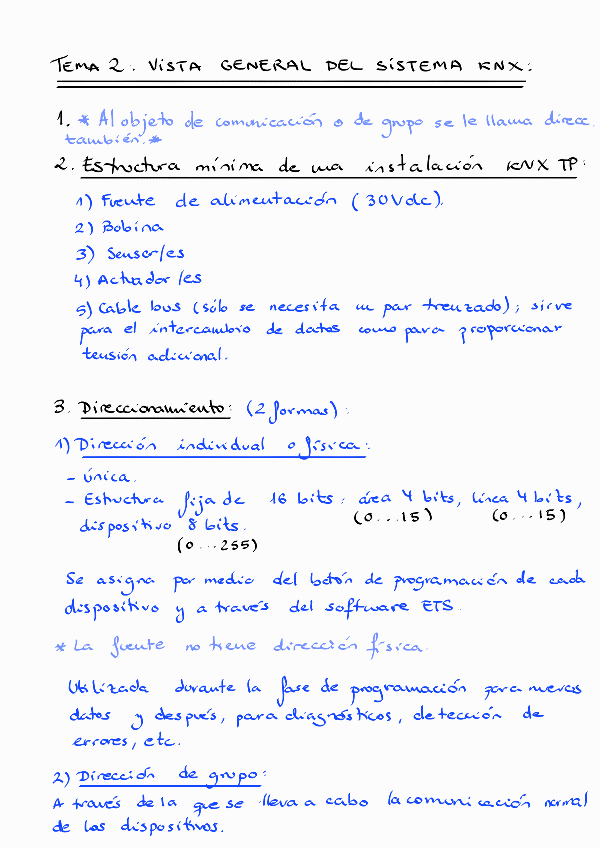 TEMA 2. VISTA GENERAL DEL SISTEMA KNX:
1. * Al objeto de comunicación o de grupo se le llama direcc.
también.*
2. Estructura mínima de una instalación KNX TP:
1) Fuente de alimentación (30Vdc).
2) Bobina
3) Sensor/es
4) Actuador/es
5) Cable bus (sólo se necesita un par trenzado); sirve
para el intercambio de datos como para proporcionar
tensión adicional.
3. Direccionamiento: (2 formas):
1) Dirección individual o física:
- única.
- Estructura fija de 16 bits: área 4 bits, línea 4 bits,
(0...15) (0...15)
dispositivo 8 bits.
(0...255)
Se asigna por medio del botón de programación de cada
dispositivo y a través del software ETS.
* La fuente no tiene dirección física.
Utilizada durante la fase de programación para nuevos
datos y después, para diagnósticos, detección de
errores, etc.
2) Dirección de grupo:
A través de la que se lleva a cabo la comunicación normal
de los dispositivos.